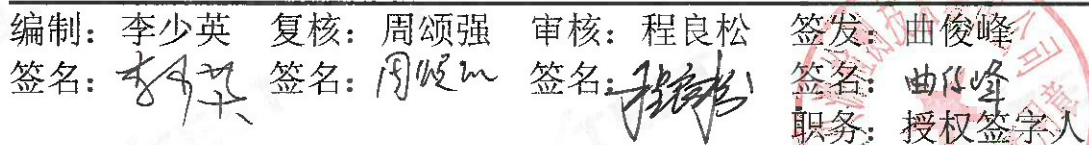 编制：李少英 复核：周颂强 审核：程良松 签发：曲俊峰
签名：李少英 签名：周颂强 签名：程良松 签名：曲俊峰
职务：授权签字人